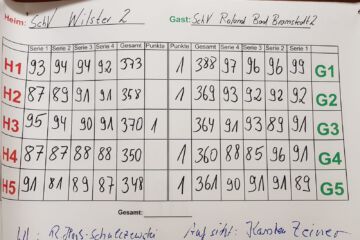 Heim: SchV Wilster 2 Gast: SchV Roland Bad Bramstedt 2
Serie 1 Serie 2 Serie 3 Serie 4 Gesamt Punkte Punkte Gesamt Serie 1 Serie 2 Serie 3 Serie 4
H1 93 94 94 92 373 1 388 97 96 96 99 G1
H2 87 89 91 91 358 1 369 93 92 92 92 G2
H3 95 94 90 91 370 1 364 91 93 89 91 G3
H4 87 87 88 88 350 1 360 88 85 96 91 G4
H5 91 81 89 87 348 1 361 90 91 91 89 G5
Gesamt:
Aufsicht: Karsten Zeiner